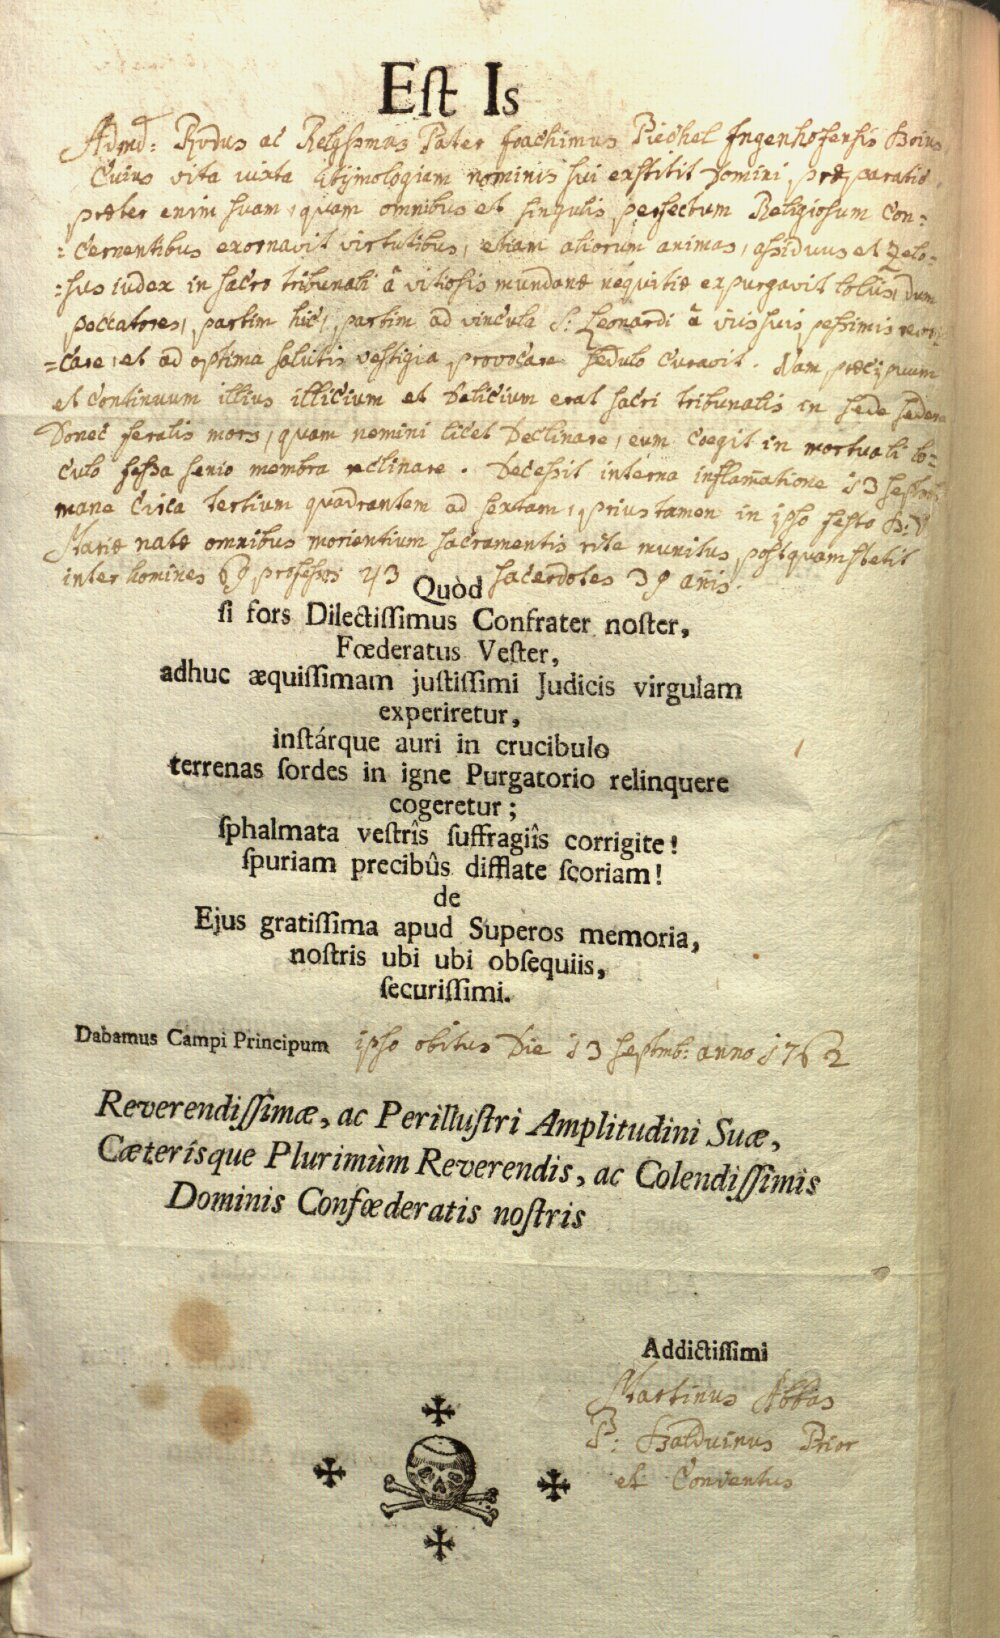 Eſt Is
Admd: Rvdus ac Relgssmus Pater Joachimus Piechel Ingenhofensis Boius,
Cuius vita iuxta Etÿmologiam nominis sui exstitit Domini præparatio.
præter enim suam, quam omnibus et singulis perfectum Religiosum con:
: cernentibus exornavit virtutibus, etiam aliorum animas, assiduus et zelo:
=sus iudex in sacro tribunali â vitiosis mundanæ nequitiæ expurgavit dum
peccatores, partim hic, partim ad vincula S: Leonardi â viis suis pessimis
=care, et ad optima salutis vestigia provocare sedulo curavit. Nam præcipuum
et continuum illius illicium et Delicium erat sacri tribunalis in sede sedere
Donec feralis mors, quam nemini licet Declinare, eum coegit in mortuali lo=
culo fessa senio membra reclinare. Decessit interna inflam̄atione 13 septmb:
mane circa tertium quadrantem ad sextam, prius tamen in ipso festo B: V
Mariæ natæ omnibus morientium sacramentis rite munitus, postquam stetit
inter homines 69 professos 43 sacerdotes 39 an̄is.
Quòd
ſi fors Dilectiſſimus Confrater noſter,
Fœderatus Veſter,
adhuc æquiſſimam juſtiſſimi Judicis virgulam
experiretur,
inſtárque auri in crucibulo
terrenas ſordes in igne Purgatorio relinquere
cogeretur;
ſphalmata veſtrîs ſuffragiîs corrigite!
ſpuriam precibûs difflate ſcoriam!
de
Ejus gratiſſima apud Superos memoria,
noſtris ubi ubi obſequiis,
ſecuriſſimi.
Dabamus Campi Principum ipso obitus Die 13 septmb: anno 1762
Reverendiſſimæ, ac Perilluſtri Amplitudini Suæ,
Cæterísque Plurimùm Reverendis, ac Colendiſſimis
Dominis Confœderatis noſtris
Addictiſſimi
Martinus Abbas
P: Balduinus Prior
et Conventus